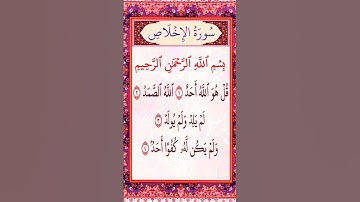 سُورَةُ الإِخْلَاصِ
بِسْمِ ٱللَّهِ ٱلرَّحْمَٰنِ ٱلرَّحِيمِ
قُلْ هُوَ ٱللَّهُ أَحَدٌ ١ ٱللَّهُ ٱلصَّمَدُ ٢
لَمْ يَلِدْ وَلَمْ يُولَدْ ٣
وَلَمْ يَكُن لَّهُۥ كُفُوًا أَحَدٌۢ ٤